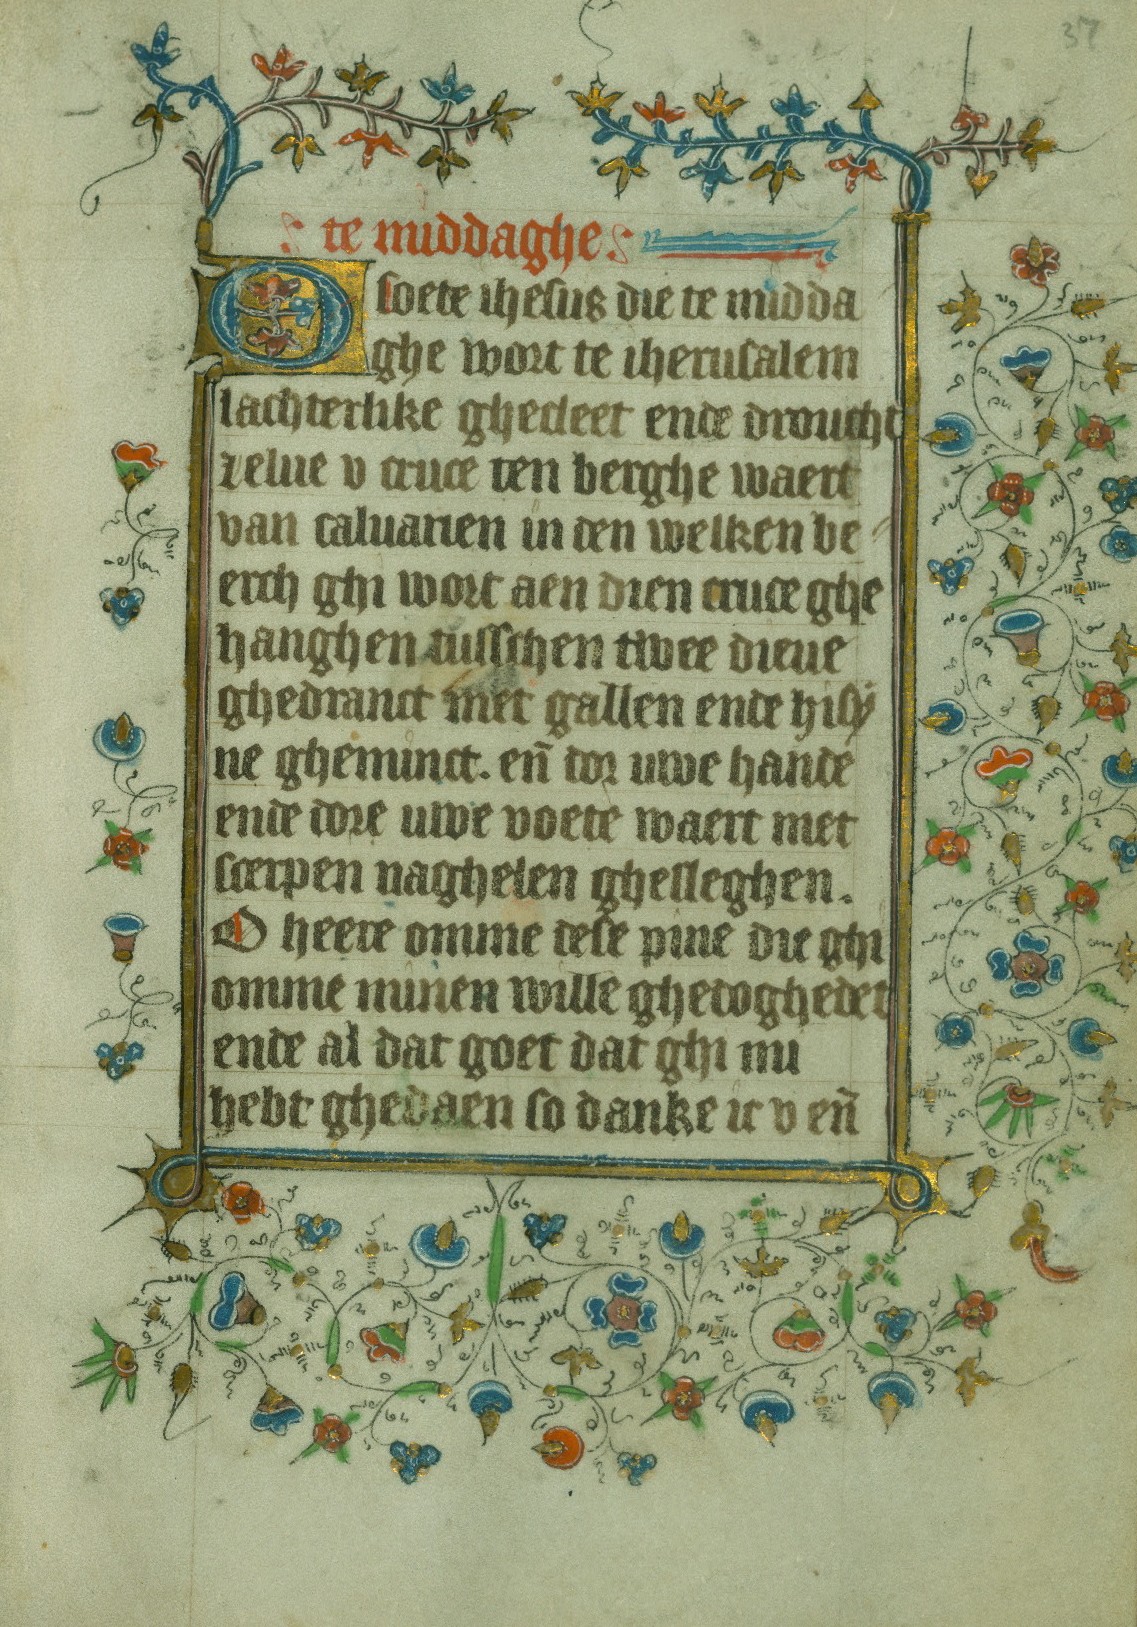 37
te middaghe
O soete ihesus die te midda
ghe wort te iherusalem
lachterlike ghecleet ende droucht
zelue v cruce ten berghe waert
van caluarien in den welken be
erch ghi wort aen dien cruce ghe
hanghen tusschen twee dieue
ghedranct met gallen ende hisy
ne gheminct. en̄ dor uwe hande
ende dore uwe voete waert met
scerpen naghelen ghesleghen.
O heere omme dese pine die ghi
omme minen wille ghedoghedet
ende al dat goet dat ghi mi
hebt ghedaen so danke ic v en̄